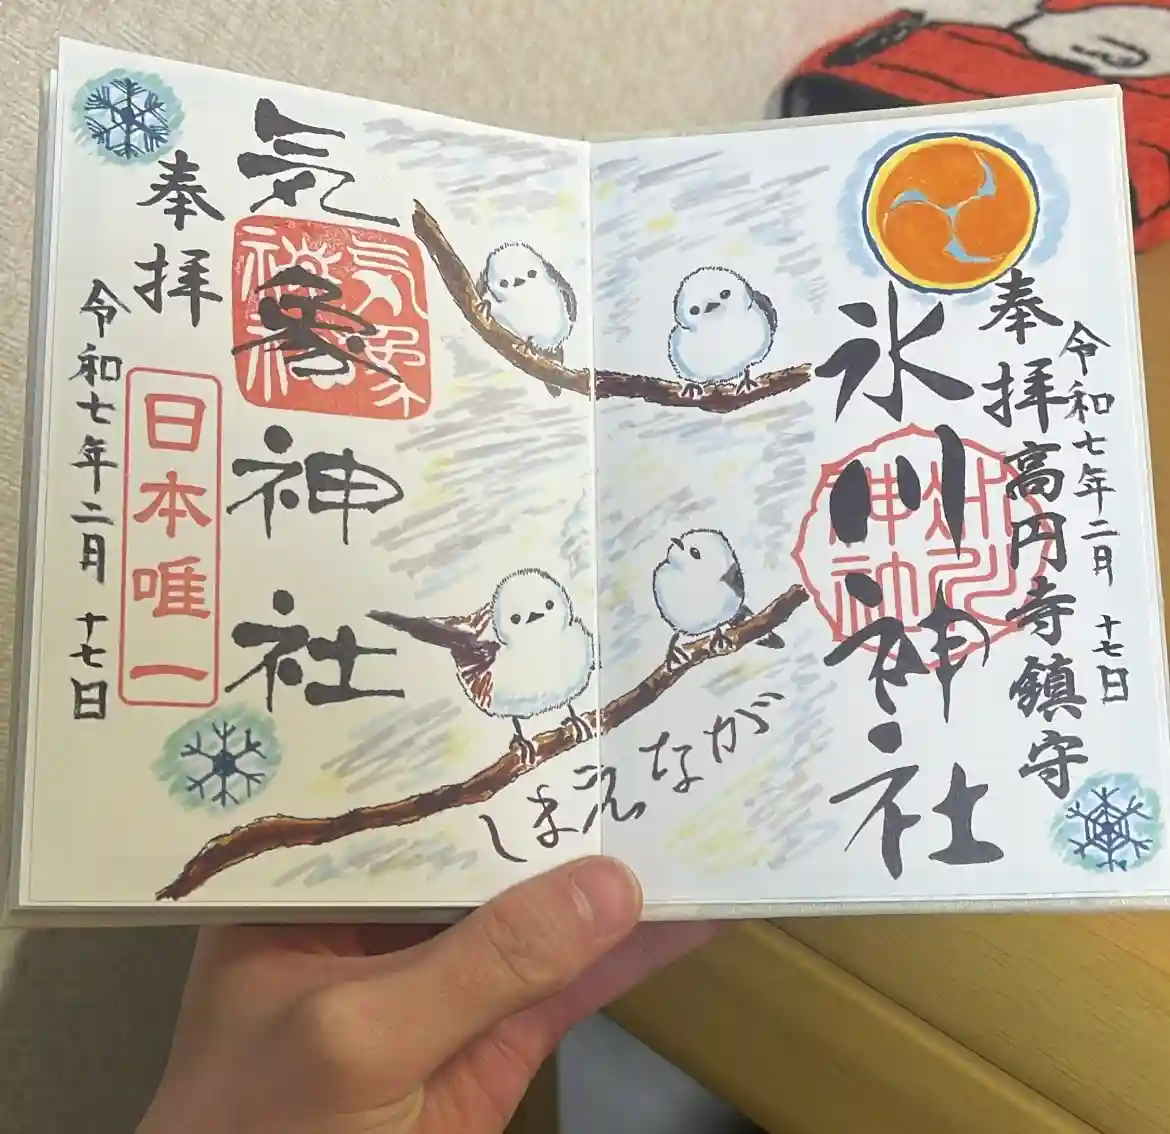 令和七年二月 十七日
奉拝
高円寺鎮守
氷川神社
氷川神社
しまえなが
氣象神社
氣象神社
奉拝
日本唯一
令和七年二月 十七日